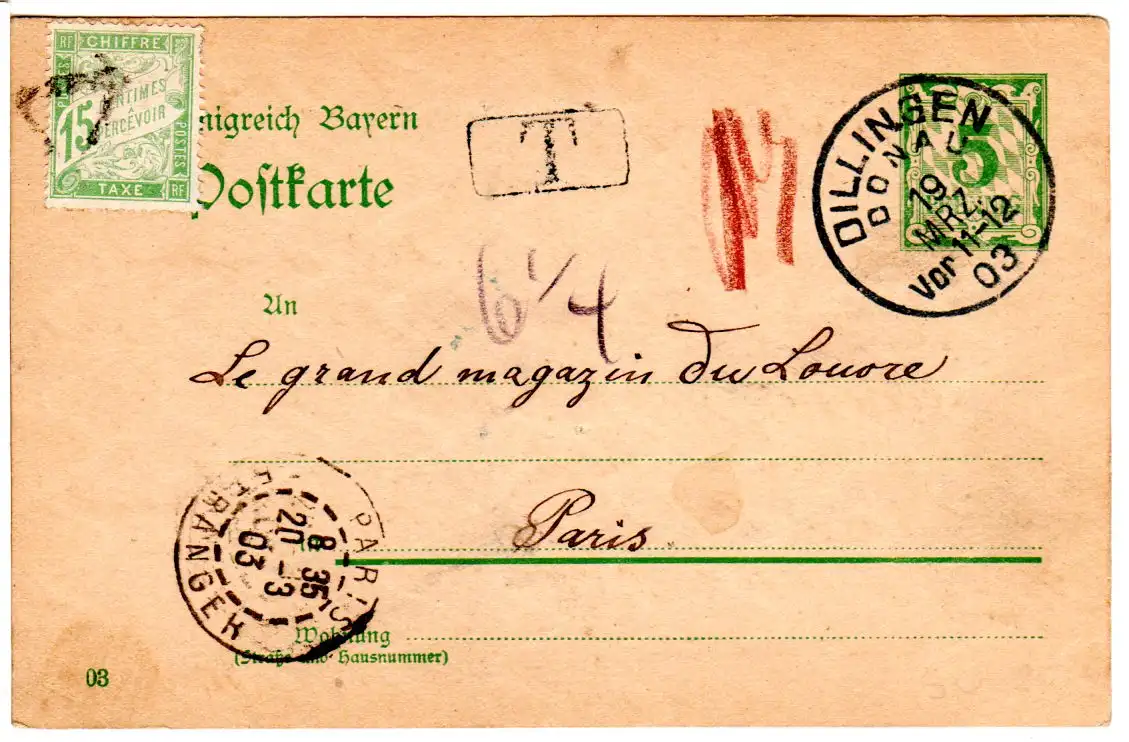 RF CHIFFRE
POSTES
15 CENTIMES
PERCEVOIR
POSTES
TAXE RF
nigreich Bayern
Postkarte
T
5
DILLINGEN
DONAU
19 MRZ.
Vor 11-12
03
An
6 1/4
Le grand magazin du Louvre
Paris
PARIS
ETRANGER
8 35
20 - 3
03
Wohnung
(Straße und Hausnummer)
03